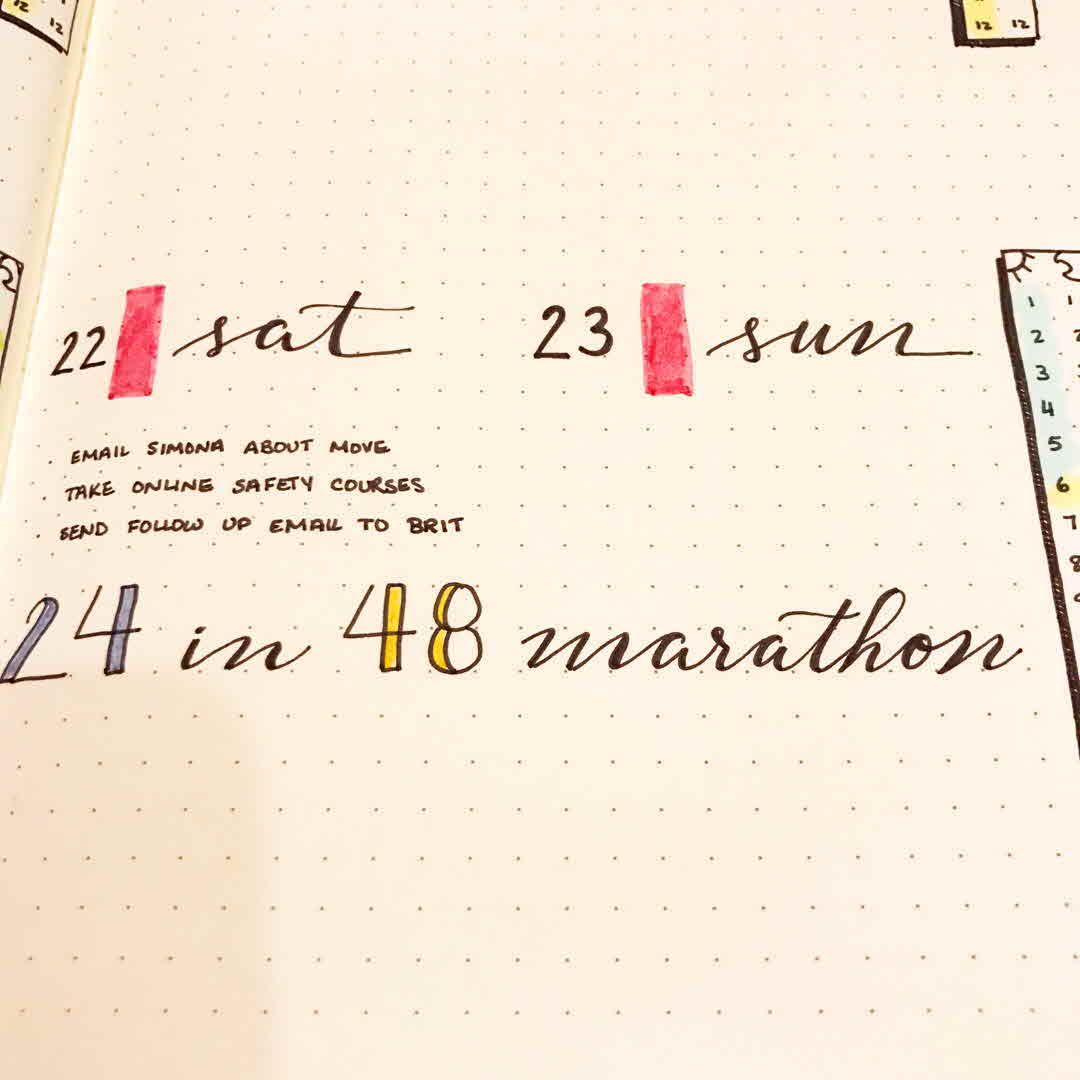 12 12
12 12
22 sat 23 sun
. EMAIL SIMONA ABOUT MOVE
. TAKE ONLINE SAFETY COURSES
. SEND FOLLOW UP EMAIL TO BRIT
24 in 48 marathon
1 1
2 2
3 3
4
5
6
7
8